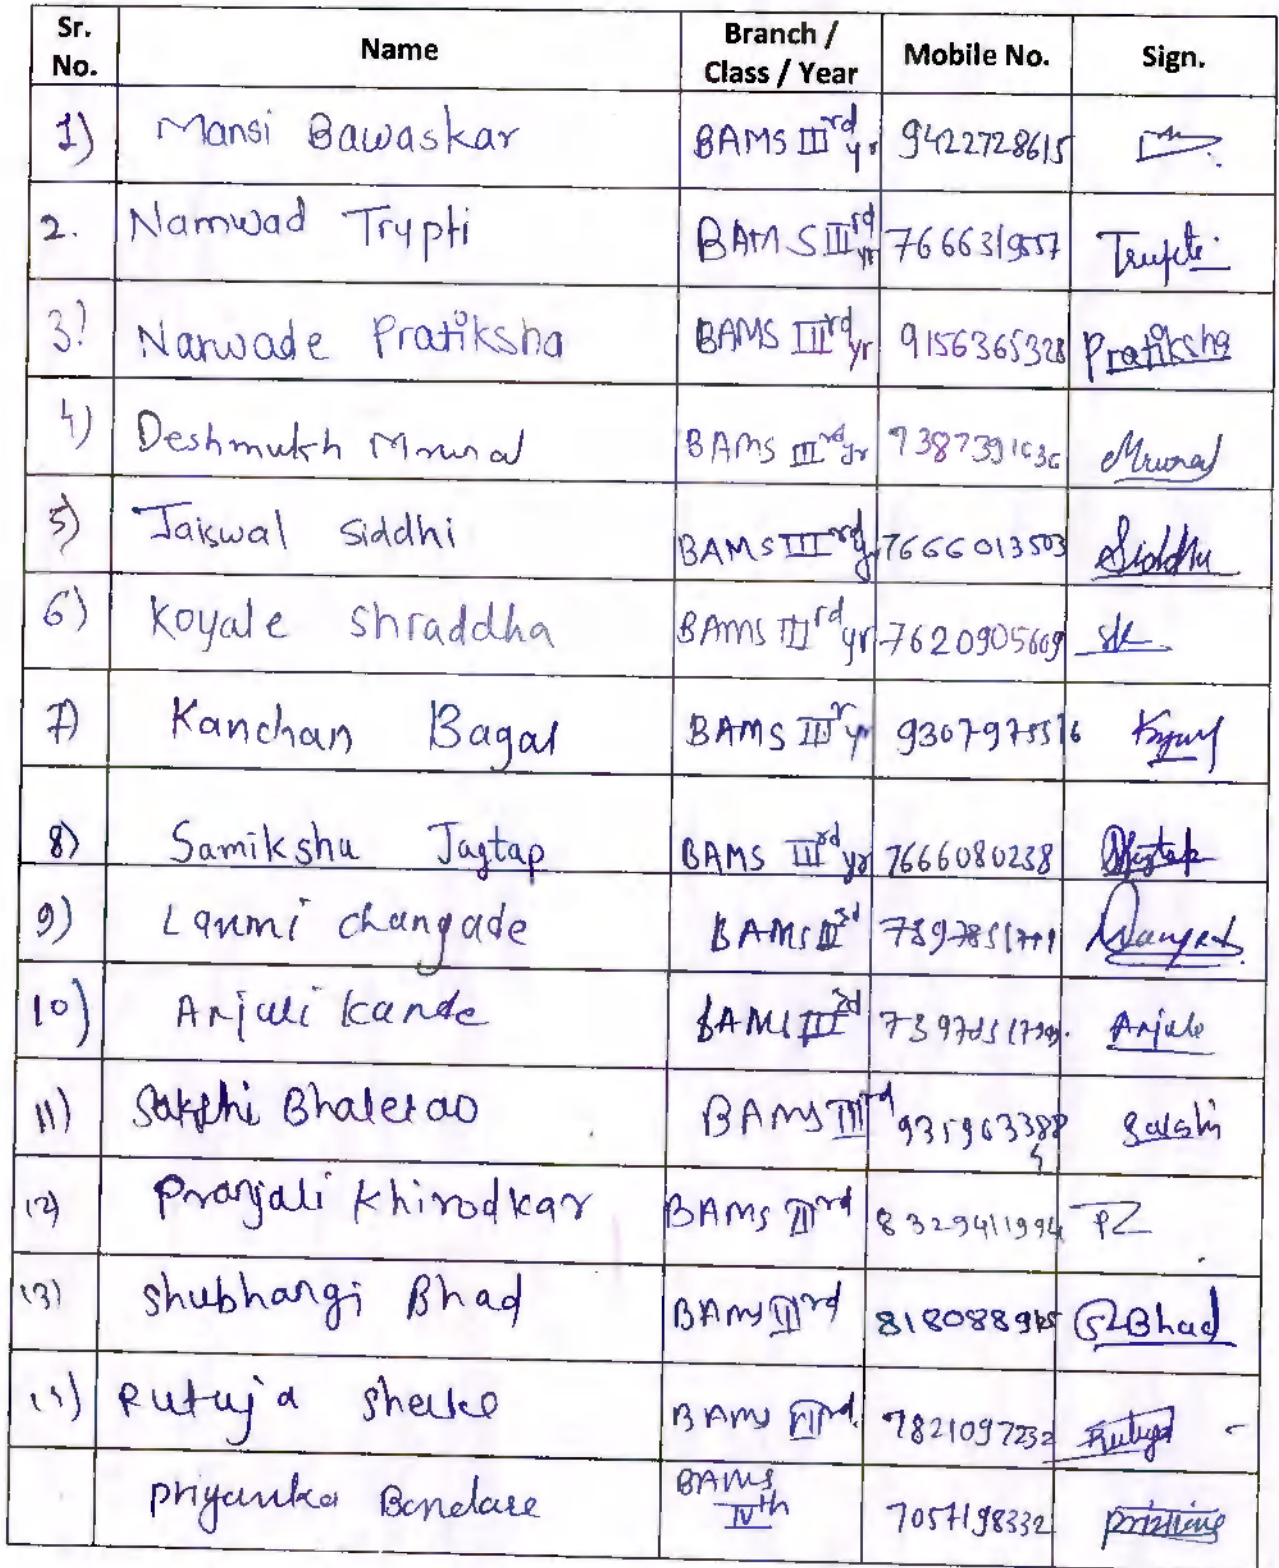 Sr. No. Name Branch / Class / Year Mobile No. Sign.
1) Mansi Bawaskar BAMS III rd yr 9422728615
2. Namwad Trypti BAMS III rd yr 7666319557 Trupti
3) Narwade Pratiksha BAMS III rd yr 9156365328 Pratiksha
4) Deshmukh Mrunal BAMS III rd yr Mrunal
5) Jaiswal Siddhi BAMS III rd y 7666013503 Siddhi
6) Koyale Shraddha BAMS III rd yr 7620905609 sk
7) Kanchan Bagal BAMS III r yr
8) Samiksha Jagtap BAMS III rd yr 7666080238 Jagtap
9) Laxmi Changade BAMS III 3d
10) Anjali Kande BAMS III 3d Anjali
11) Sakshi Bhalerao BAMS III rd 9359633884 Sakshi
12) Pranjali Khirodkar BAMS III rd 8329411994
13) Shubhangi Bhad BAMS III rd Bhad
Rutuja Shelke BAMS III rd 7821097232 Rutuja
Priyanka Bandare BAMS IV th 7057198332